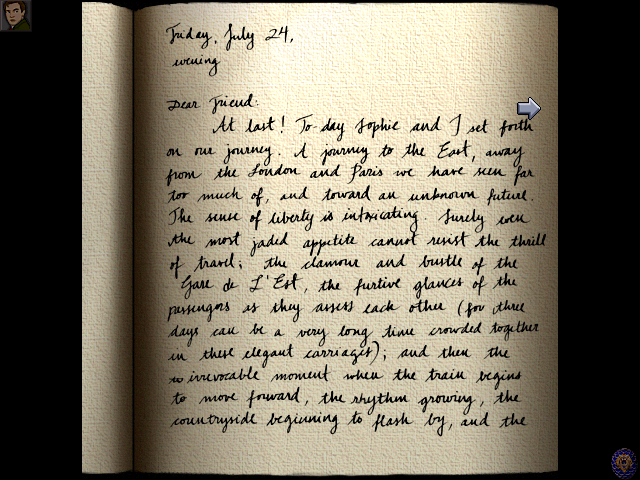 Friday, July 24,
evening
Dear Friend:
At last! To-day Sophie and I set forth
on our journey. A journey to the East, away
from the London and Paris we have seen far
too much of, and toward an unknown future.
The sense of liberty is intoxicating. Surely even
the most jaded appetite cannot resist the thrill
of travel; the clamour and bustle of the
Gare de L'Est, the furtive glances of the
passengers as they assess each other (for three
days can be a very long time crowded together
in these elegant carriages); and then the
irrevocable moment when the train begins
to move forward, the rhythm growing, the
countryside beginning to flash by, and the